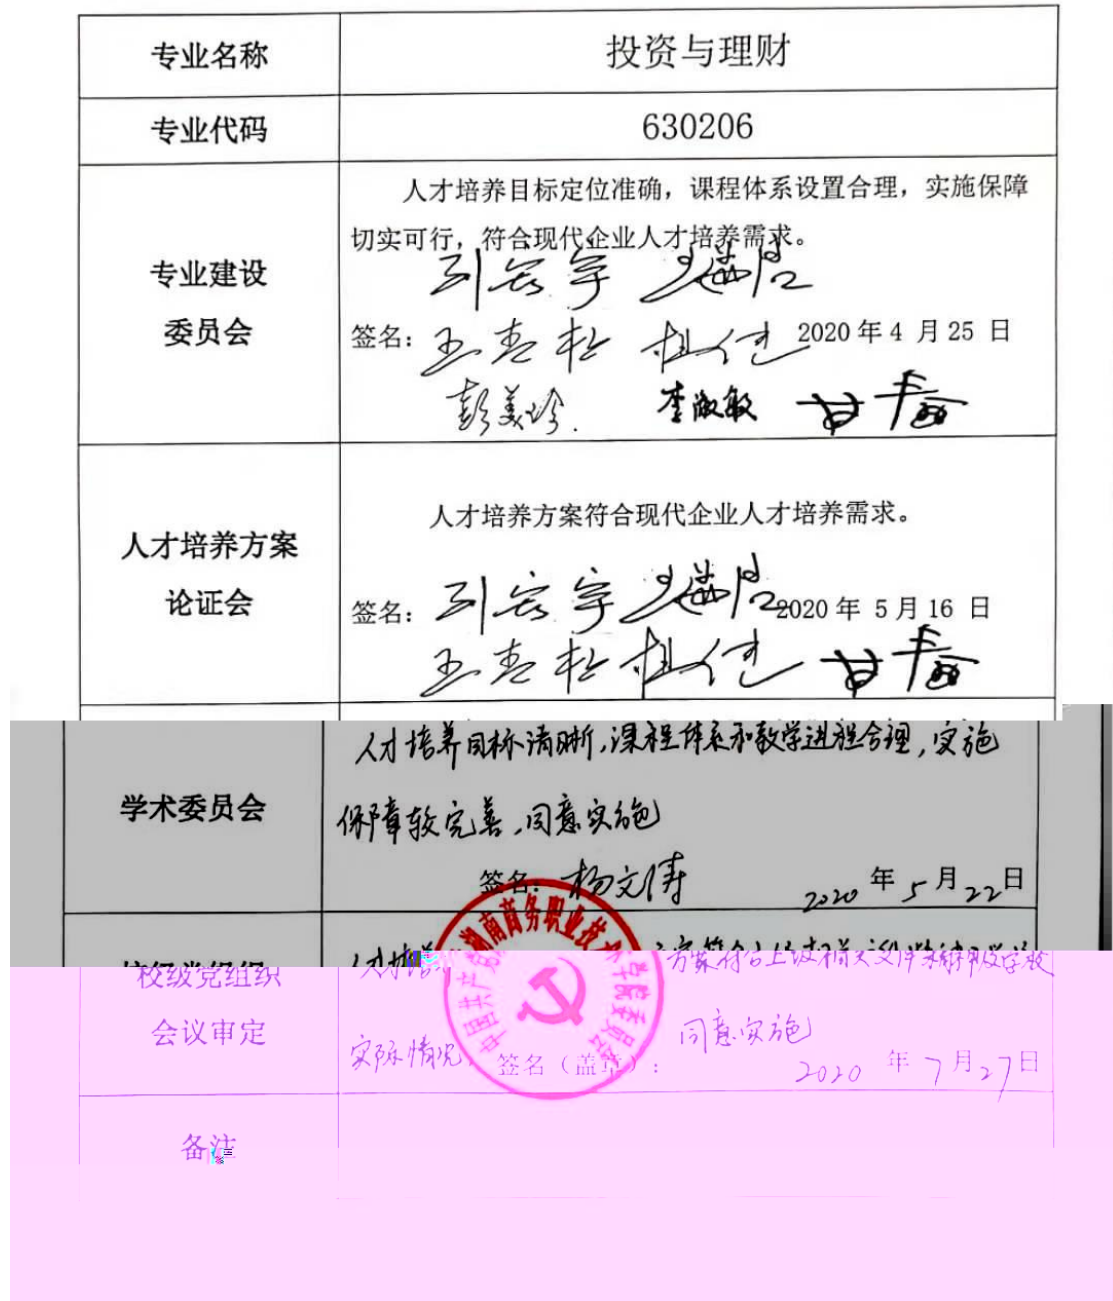 专业名称 投资与理财
专业代码 630206
专业建设
委员会
人才培养目标定位准确，课程体系设置合理，实施保障
切实可行，符合现代企业人才培养需求。
签名： 2020 年 4 月 25 日
彭美玲 李淑敏
人才培养方案
论证会
人才培养方案符合现代企业人才培养需求。
签名： 2020 年 5 月 16 日
学术委员会
人才培养目标清晰，课程体系和教学进程合理，实施
保障较完善，同意实施
签名：杨文涛 2020 年 5 月 22 日
校级党组织
会议审定
人才培养 方案符合上级相关文件精神及学校
实际情况， 同意实施
签名（盖章）： 2020 年 7 月 27 日
中国共产党湖南商务职业技术学院委员会
备注